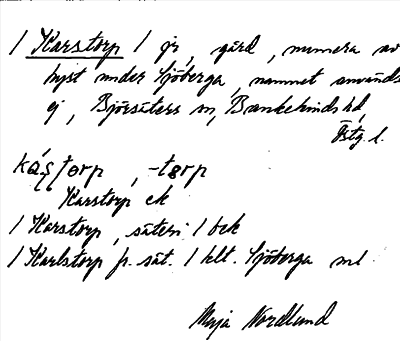 / Karstorp / jr, gård, numera av-
hyst under Sjöberga, namnet används
ej, Björsäters sn, Bankekinds hd,
Östg. l.
kás̱torp, -tørp
Karstorp ek
/ Karstorp, säteri / bek
/ Karlstorp fr. sät. / hlt. Sjöberga ml
Maja Nordlund